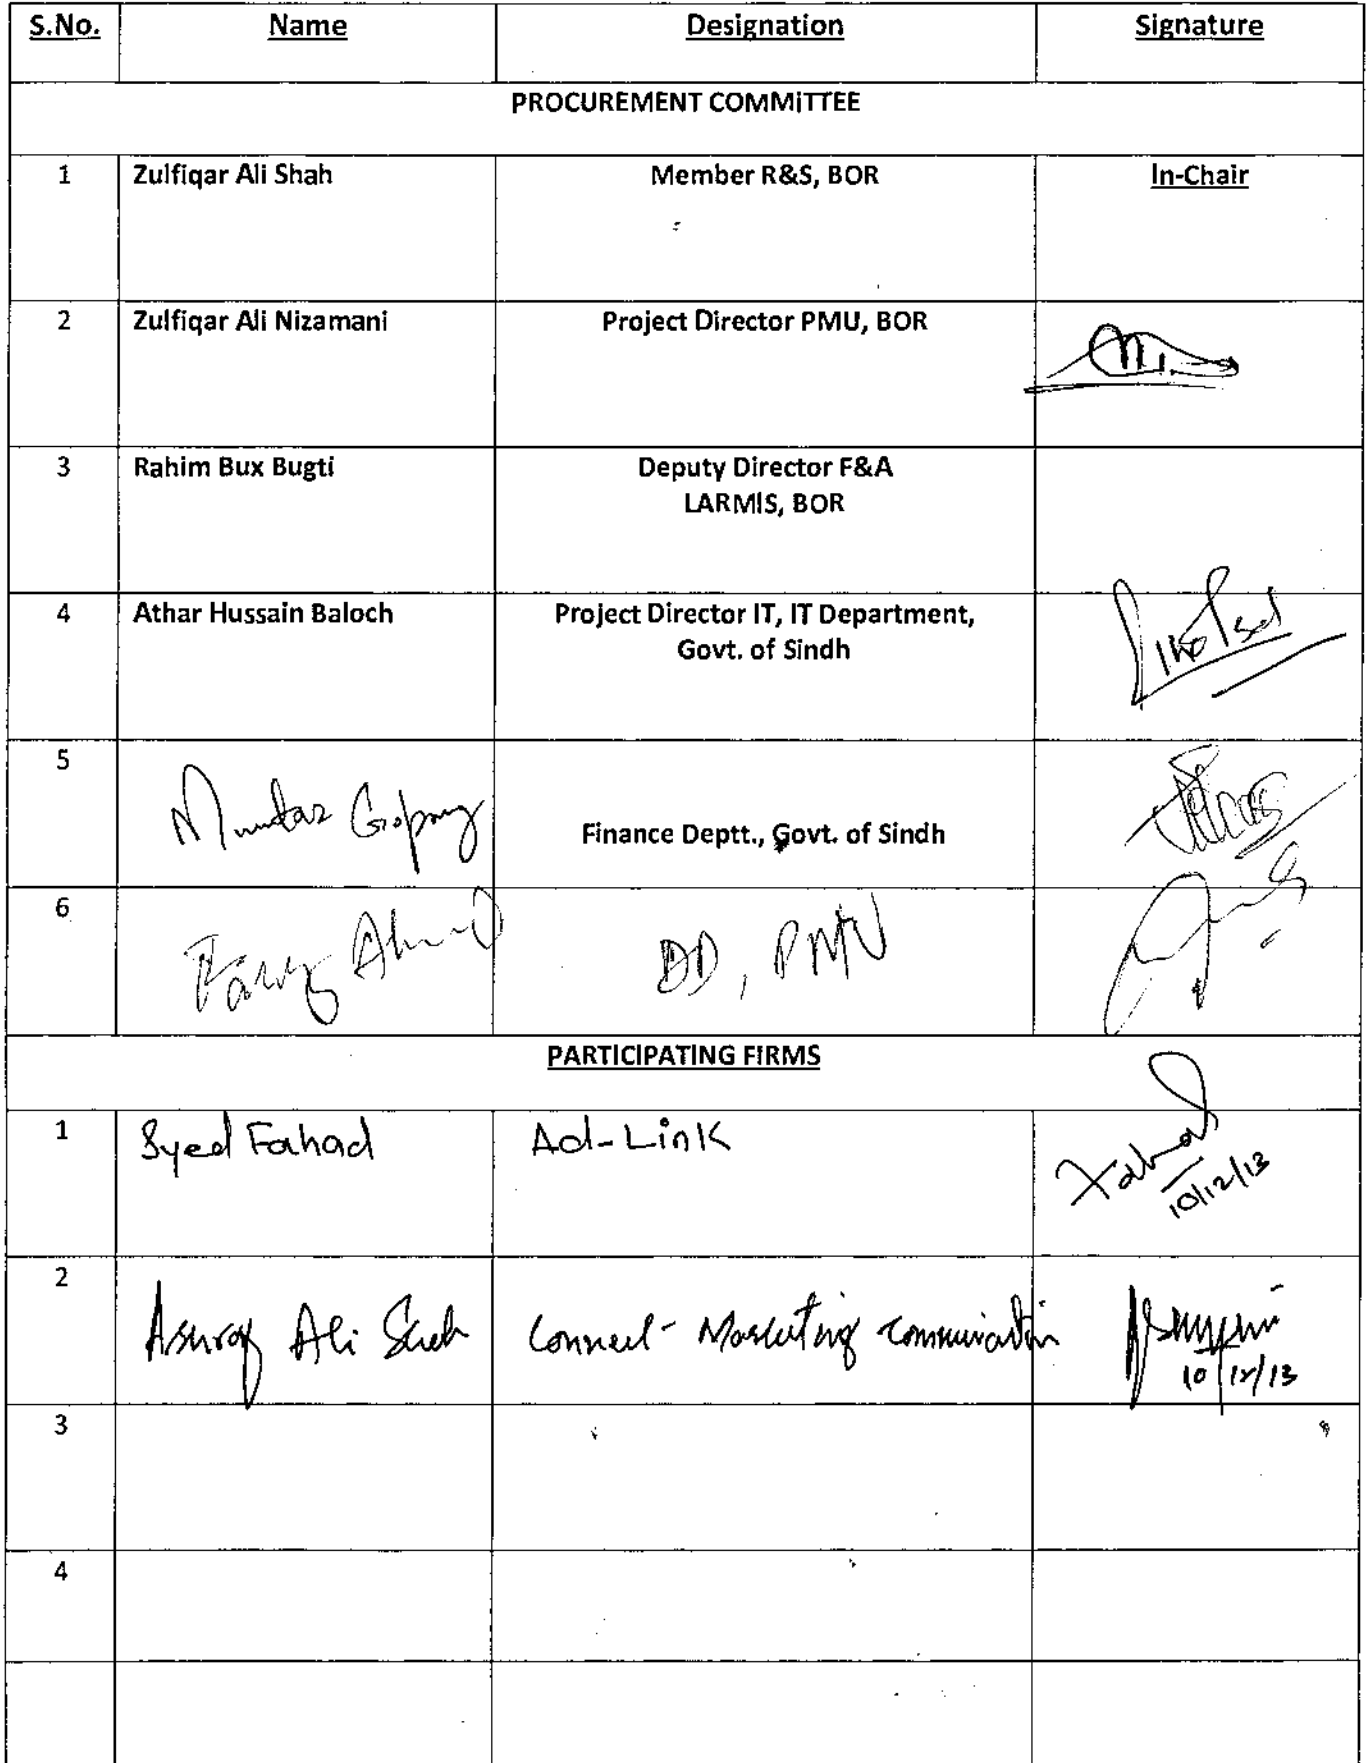 S.No. Name Designation Signature
PROCUREMENT COMMITTEE
1 Zulfiqar Ali Shah Member R&S, BOR In-Chair
2 Zulfiqar Ali Nizamani Project Director PMU, BOR
3 Rahim Bux Bugti Deputy Director F&A
LARMIS, BOR
4 Athar Hussain Baloch Project Director IT, IT Department,
Govt. of Sindh
5 Mumtaz Gopang Finance Deptt., Govt. of Sindh
6 Ahmed DD, PMU
PARTICIPATING FIRMS
1 Syed Fahad Ad-Link Fahad
10/12/13
2 Ali Connect-Marketing Communication
10/12/13
3
4